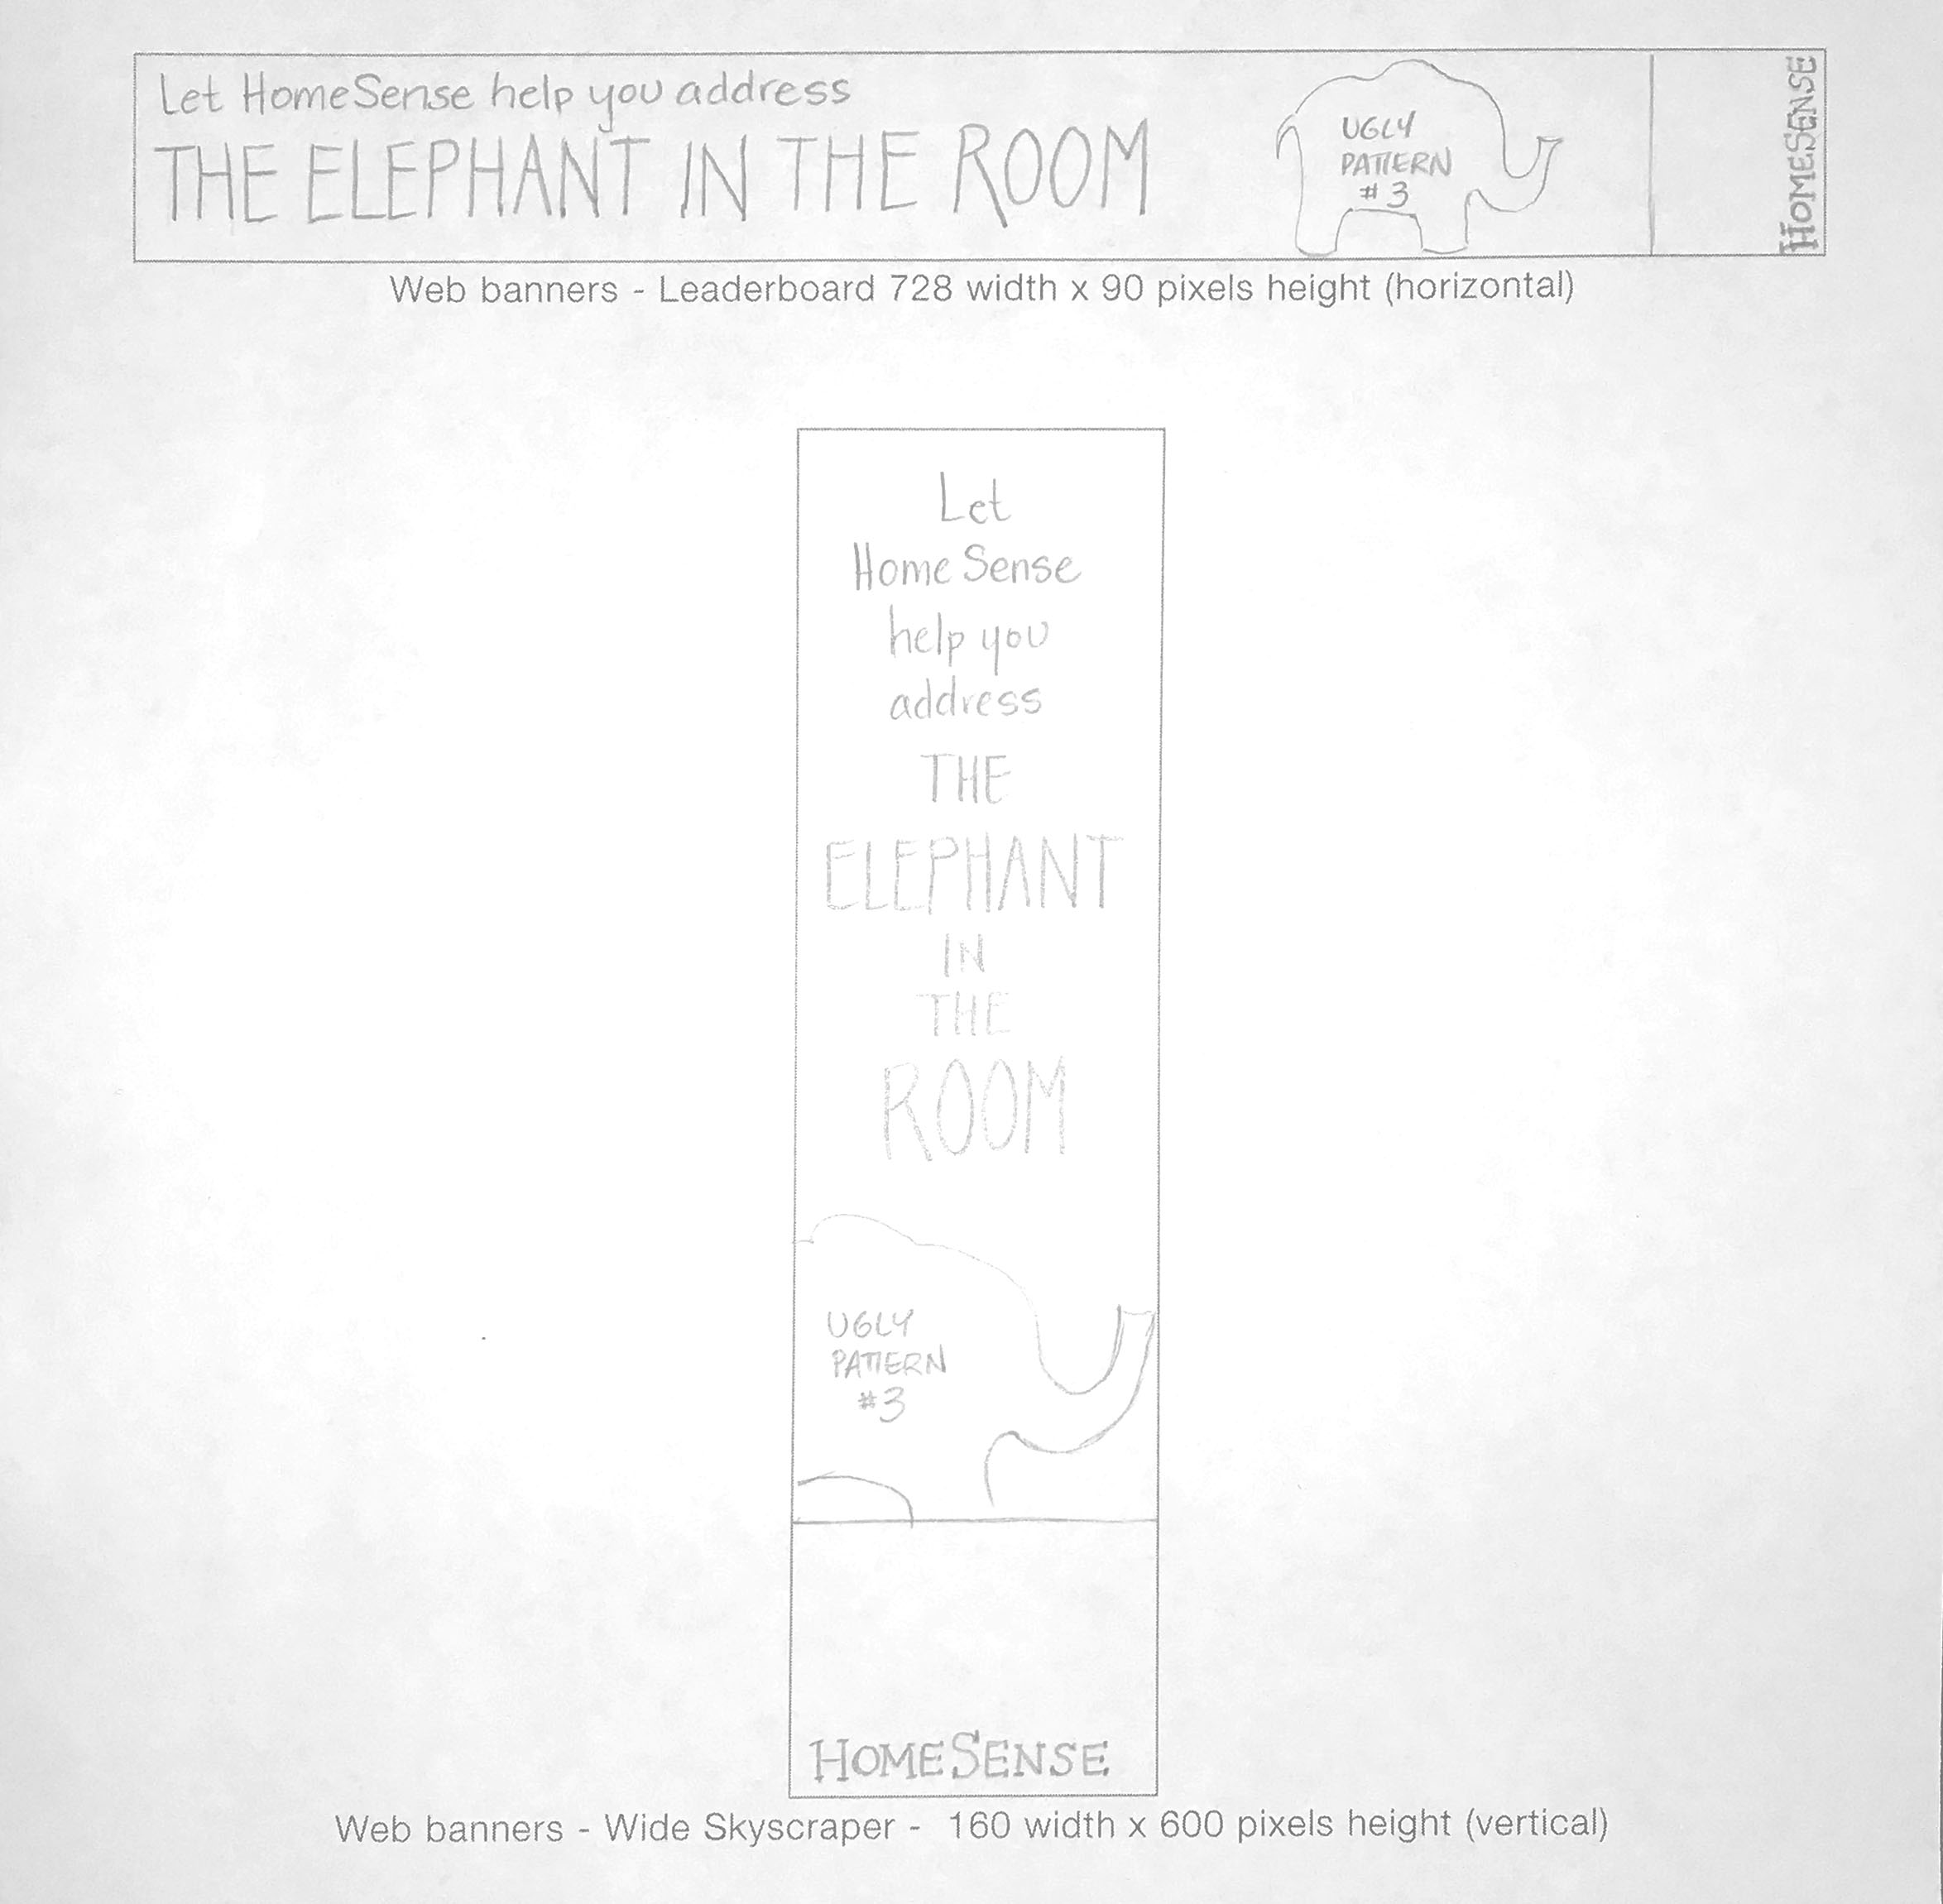 Let HomeSense help you address
THE ELEPHANT IN THE ROOM
UGLY
PATTERN
#3
HOMESENSE
Web banners - Leaderboard 728 width x 90 pixels height (horizontal)
Let
HomeSense
help you
address
THE
ELEPHANT
IN
THE
ROOM
UGLY
PATTERN
#3
HOMESENSE
Web banners - Wide Skyscraper - 160 width x 600 pixels height (vertical)